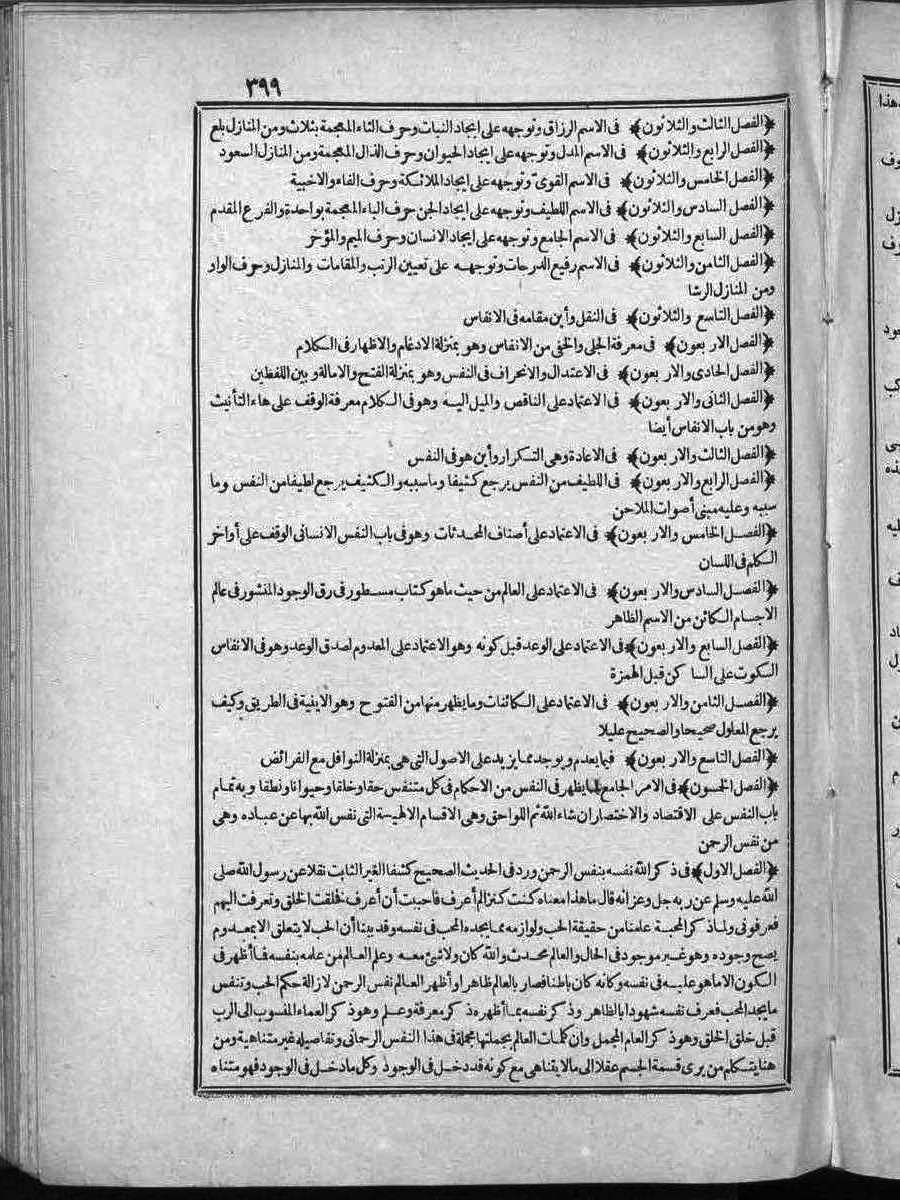 ٣٩٩
﴿الفصل الثالث والثلاثون﴾ فى الاسم الرزاق وتوجهه على ايجاد النبات وحرف الثاء المعجمة بثلاث ومن المنازل بلع
﴿الفصل الرابع والثلاثون﴾ فى الاسم المذل وتوجهه على ايجاد الحيوان وحرف الذال المعجمة ومن المنازل السعود
﴿الفصل الخامس والثلاثون﴾ فى الاسم القوى وتوجهه على ايجاد الملائكة وحرف الفاء والاخبية
﴿الفصل السادس والثلاثون﴾ فى الاسم اللطيف وتوجهه على ايجاد الجن حرف الباء المعجمة بواحدة والفرع المقدم
﴿الفصل السابع والثلاثون﴾ فى الاسم الجامع وتوجهه على ايجاد الانسان وحرف الميم والمؤخر
﴿الفصل الثامن والثلاثون﴾ فى الاسم رفيع الدرجات وتوجهه على تعيين الرتب والمقامات والمنازل وحرف الواو
ومن المنازل الرشا
﴿الفصل التاسع والثلاثون﴾ فى النقل وأين مقامه فى الانفاس
﴿الفصل الاربعون﴾ فى معرفة الجلى والخفى من الانفاس وهو بمنزلة الادغام والاظهار فى الكلام
﴿الفصل الحادى والاربعون﴾ فى الاعتدال والانحراف فى النفس وهو بمنزلة الفتح والامالة وبين اللفظين
﴿الفصل الثانى والاربعون﴾ فى الاعتماد على الناقص والميل اليه وهو فى الكلام معرفة الوقف على هاء التأنيث
وهو من باب الانفاس أيضا
﴿الفصل الثالث والاربعون﴾ فى الاعادة وهى التكرار وأين هو فى النفس
﴿الفصل الرابع والاربعون﴾ فى اللطيف من النفس يرجع كثيفا وماسببه والكثيف يرجع لطيفا من النفس وما
سببه وعليه مبنى أصوات الملاحن
﴿الفصل الخامس والاربعون﴾ فى الاعتماد على أصناف المحدثات وهو فى باب النفس الانسانى الوقف على أواخر
الكلم فى اللسان
﴿الفصل السادس والاربعون﴾ فى الاعتماد على العالم من حيث ماهو كتاب مسطور فى رق الوجود المنشور فى عالم
الاجسام الكائن من الاسم الظاهر
﴿الفصل السابع والاربعون﴾ فى الاعتماد على الوعد قبل كونه وهو الاعتماد على المعدوم لصدق الوعد وهو فى الانفاس
السكوت على الساكن قبل الهمزة
﴿الفصل الثامن والاربعون﴾ فى الاعتماد على الكائنات وما يظهر منها من الفتوح وهو الاينية فى الطريق وكيف
يرجع المعلول صحيحا والصحيح عليلا
﴿الفصل التاسع والاربعون﴾ فيما يعدم ويوجد مما يزيد على الاصول التى هى بمنزلة النوافل مع الفرائض
﴿الفصل الخمسون﴾ فى الامر الجامع لما يظهر فى النفس من الاحكام فى كل متنفس حقا وخلقا وحيوانا ونطقا وبه تمام
باب النفس على الاقتصاد والاختصار ان شاء الله ثم اللواحق وهى الاقسام الالهية التى نفس الله بها عن عباده وهى
من نفس الرحمن
﴿الفصل الاول﴾ فى ذكر الله نفسه بنفس الرحمن ورد فى الحديث الصحيح كشفا الغير الثابت نقلا عن رسول الله صلى
الله عليه وسلم عن ربه جل وعز انه قال ماهذا معناه كنت كنزا لم أعرف فأحببت أن أعرف فخلقت الخلق وتعرفت اليهم
فعرفونى ولما ذكر المحبة علمنا من حقيقة الحب ولوازمه مما يجده المحب فى نفسه وقد بينا أن الحب لا يتعلق الا بمعدوم
يصح وجوده وهو غير موجود فى الحال والعالم محدث والله كان ولا شئ معه وعلم العالم من علمه بنفسه فما أظهر فى
الكون الا ماهو عليه فى نفسه وكأنه كان باطنا فصار بالعالم ظاهرا وأظهر العالم نفس الرحمن لازالة حكم الحب وتنفس
ما يجد المحب فعرف نفسه شهودا بالظاهر وذكر نفسه بما أظهره ذكر معرفة وعلم وهو ذكر العماء المنسوب الى الرب
قبل خلق الخلق وهو ذكر العام المجمل وان كلمات العالم بجملتها مجملة فى هذا النفس الرحمانى وتفاصيله غير متناهية ومن
هنا يتكلم من يرى قسمة الجسم عقلا الى مالا يتناهى مع كونه قد دخل فى الوجود وكل ما دخل فى الوجود فهو متناه